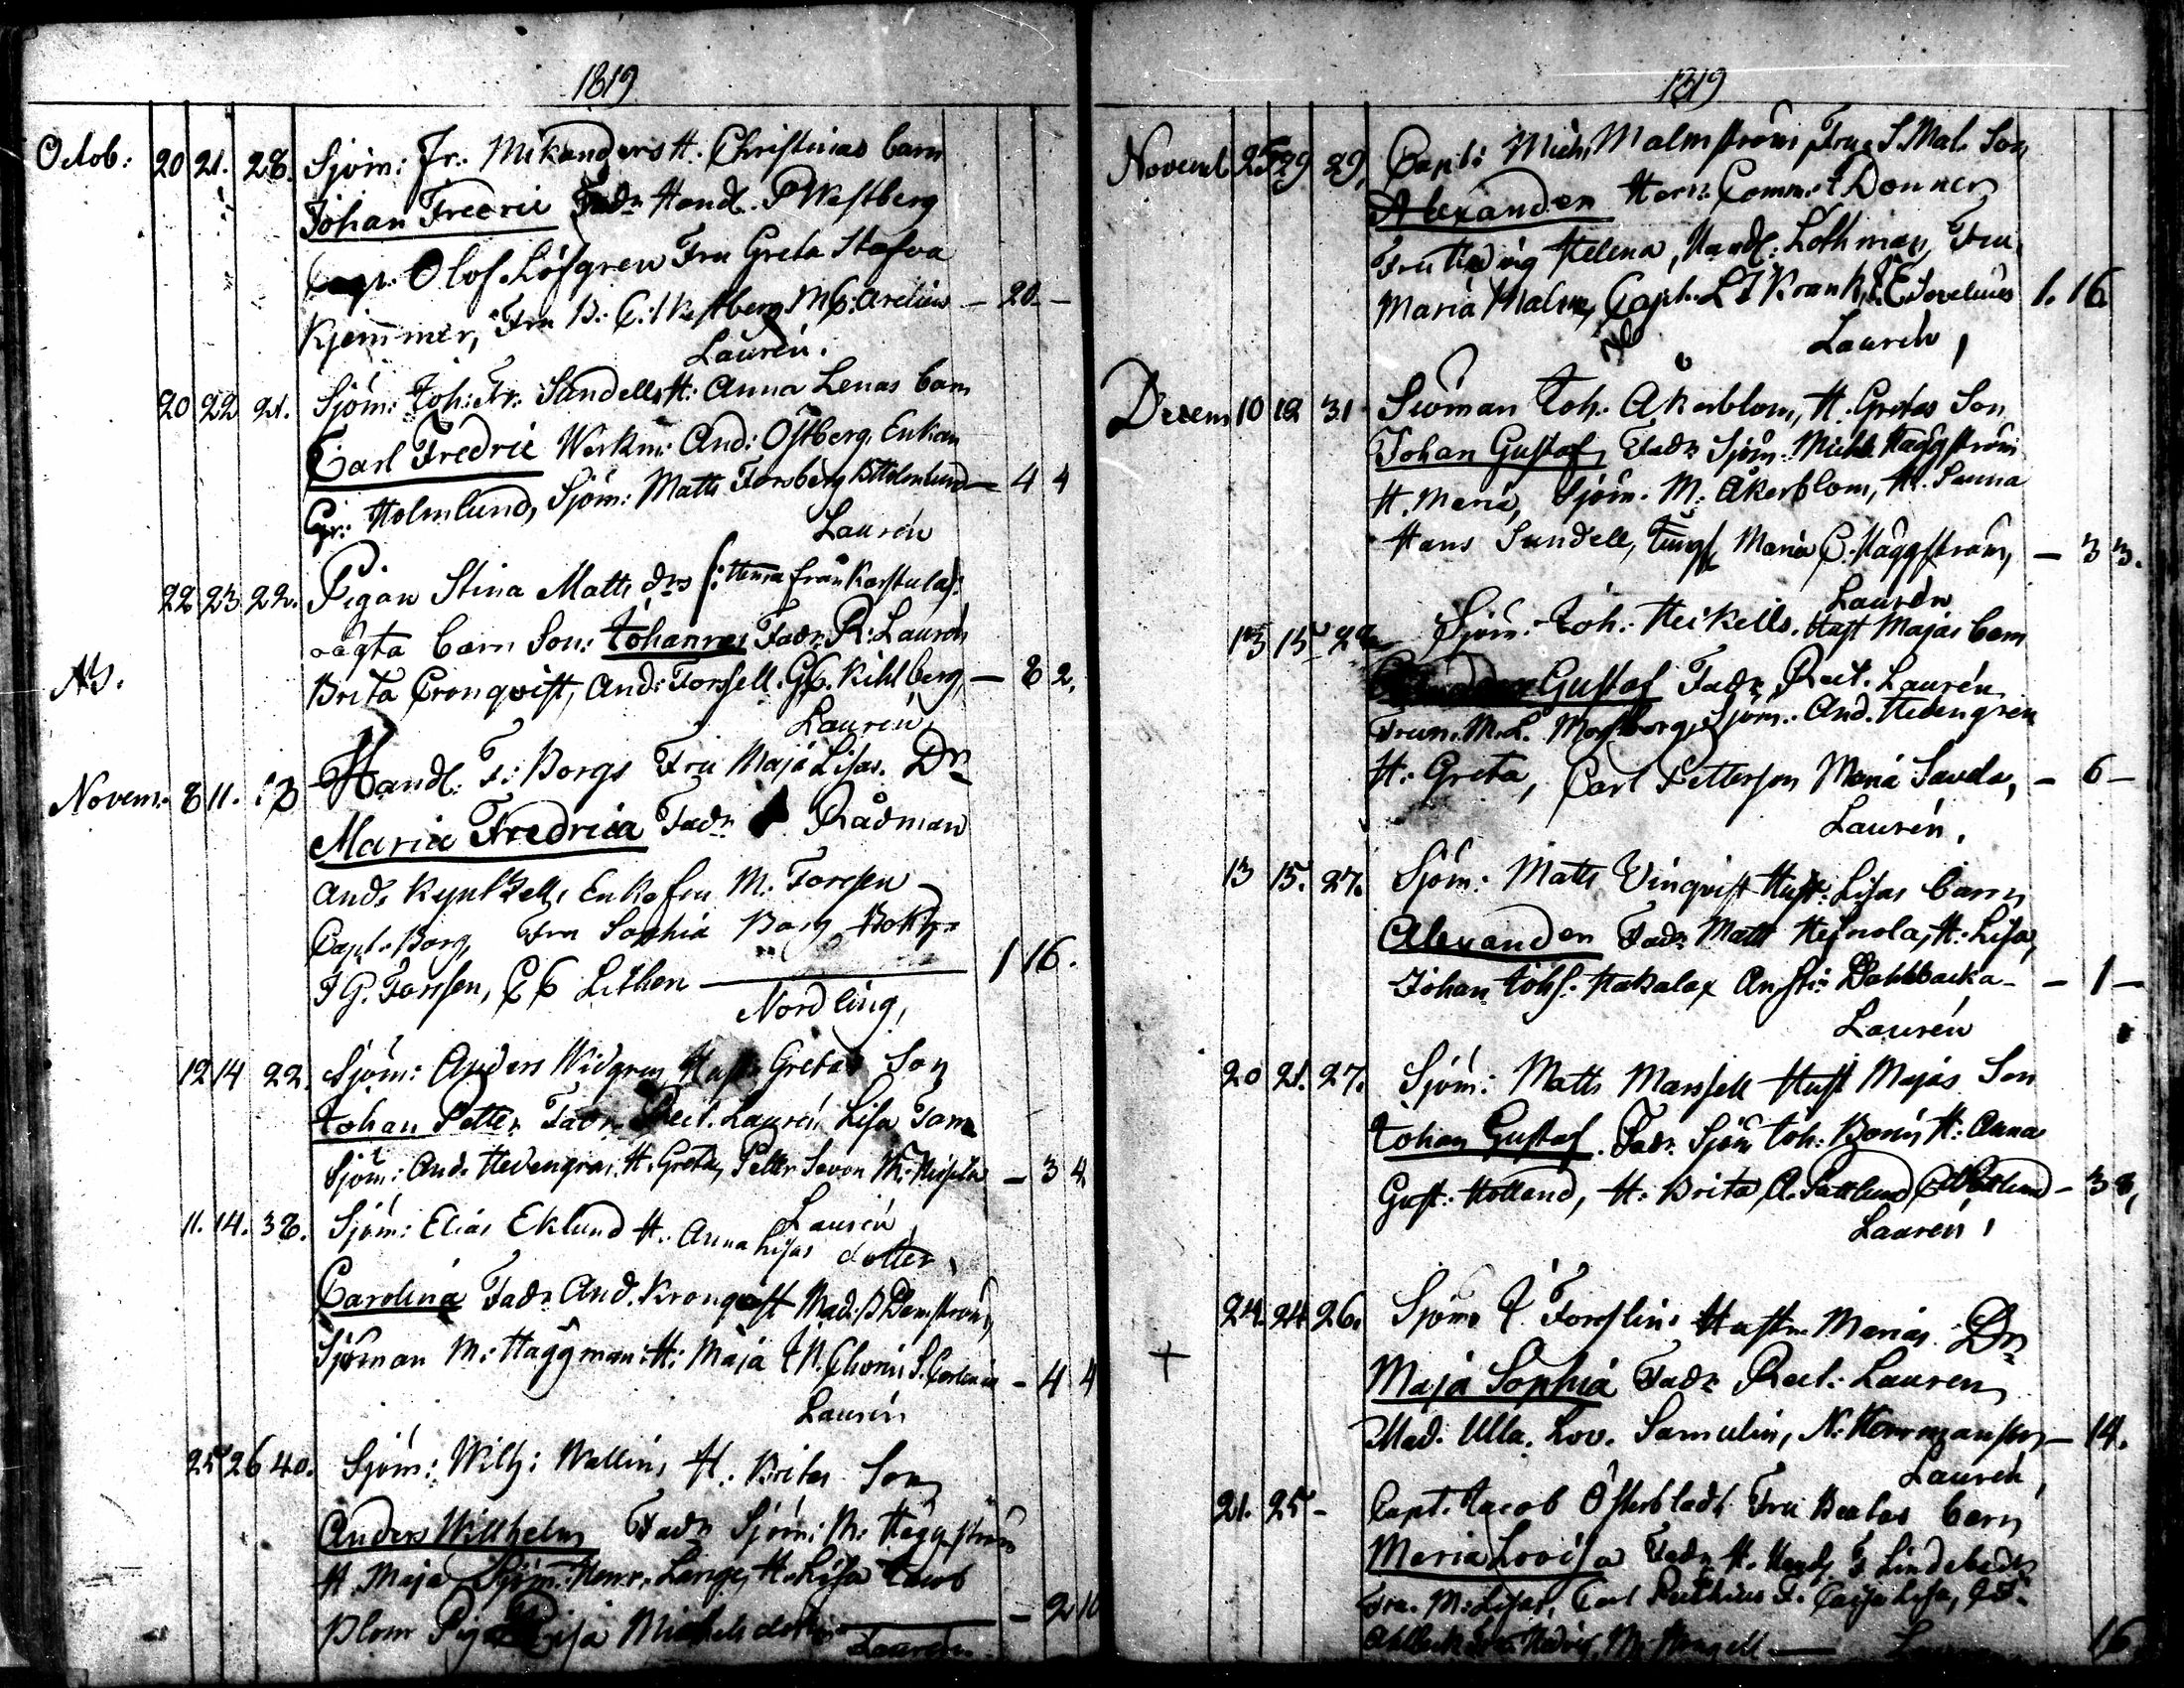 1819
Octob: 20 21. 28. Sjöm: Fr: Mikanders H: Christinas barn
Johan Fredric Fadr Handl. P Westberg
Olof Löfgren Fru Greta Stafva
Kjemmer, Fru B: C: Westberg M C: Arelius — 20 —
Laurén.
20 22 21. Sjöm: Joh: Fr: Sundells H: Anna Lenas barn
Carl Fredric Werkm: And: Östberg, Enkan
Gr: Holmlund, Sjöm: Matts Forsberg B Holmlund — 4 4
Laurén
22 23 22. Pigan Stina Matts drs /: Hemma från Karstula :/
oägta barn Son: Johannes Fadr R: Laurén
Brita Cronqvist, And: Forssell. G C. Kihlberg, — 8 2.
Laurén
Novem: 8 11. 13 Handl: F: Borgs Fru Maja Lisas Dr
Maria Fredrica Fadr Rådman
And. Kyntzell, Enkefru M. Forssen
Capt. Borg, Fru Sophia Borg Bokh.
J G. Forssen, C C Lithen — 1 16.
Nordling,
12 14 22. Sjöm: Anders Widgren Hust: Gretas Son
Johan Petter Fadr Rect. Laurén Lisa
Sjöm: And. Hedengren. H. Greta, Petter Savon — 3 4
Laurén
11. 14. 38. Sjöm: Elias Eklund H. Anna Lisas dotter
Carolina Fadr And. Kronqvist Mad: B Damström,
Sjöman M: Häggman: H: Maja — 4 4
Laurén
25 26 40. Sjöm: Wilh: Wallins H: Britas Son
Anders Wilhelm Fadr Sjöm: M: Häggström
H. Maja Sjöm: Henr. Lange, H. Lisa Jacob
Plom Piga Michelsdotter — 2 10
Laurén
1819
Novemb 25 29 29, Capt: Mich. Malmström Frus S. Mal. Son
Alexander Herr Comm: Donner
Fru Hedvig Helena, Handl: Lothman, Fru
Maria Malm, Capt. L J Krank, 1. 16
Laurén,
Decem 10 12 31 Sjöman Joh. Åkerblom, H. Gretas Son
Johan Gustaf, Fadr Sjöm. Mich. Häggström
H. Maria, Sjöm. M. Åkerblom, H. Sanna
Hans Sundell, Jungf Maria C. Häggström, — 3 3.
Laurén
13 15 Sjöm. Joh. Heikells. Hust Majas barn
Gustaf Fadr Rect. Laurén
Frun. M. L. Sjöm. And. Hedengren
H: Greta, Carl Petterson Maria Sunda, — 6 —
Laurén,
13 15. 27. Sjöm: Matts Vinqvist Hust: Lisas barn
Alexander Fadr Matts Heinola, H: Lisa,
Johan Johs: Hakalax Dahlbacka — 1 —
Laurén
20 21. 27. Sjöm: Matts Marssell Hust Majas Son
Johan Gustaf. Fadr Sjöm Joh: H: Anna
Gust: Holland, H: Brita — 3 8,
Laurén,
24. 24 26. Sjöm: J. Forslins Hustru Marias Dr
+ Maja Sophia Fadr Rect: Lauren
Mad. Ulla. Lov. Samulin, N: Hermanson — 14.
Laurén,
21. 25 - Capt. Jacob Österbladt Fru Beatas barn
Maria Lovisa Fadr H. Handl. F Lindebeck
Fru. M: Lisa, Carl F. Cajsa Lisa,
Fru Hedvig, — 16